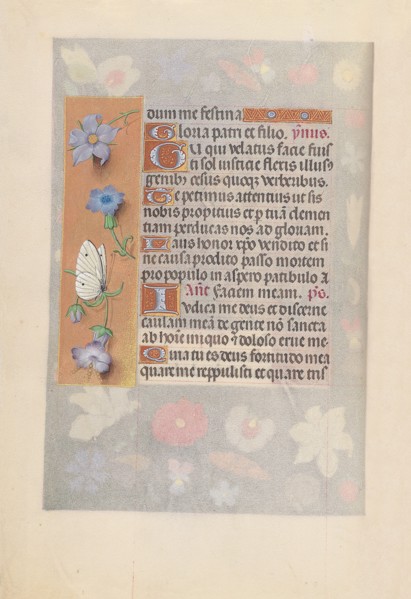 dum me festina
Gloria patri et filio. ymnus.
Qui velatus facie fuisti
sol iusticie flexis illus⁹
genib⁹ cesus quoqꝫ verberibus.
Te petimus attentius ut sis
nobis propitius et p tuā clemen
tiam perducas nos ad gloriam.
Laus honor xpo vendito et si
ne causa prodito passo mortem
pro populo in aspero patibulo A
Añt Faciem meam. ps.
Iudica me deus et discerne
causam meā de gente nō sancta
ab hoīe iniquo ⁊ doloso erue me.
Quia tu es deus fortitudo mea
quare me reppulisti et quare tris